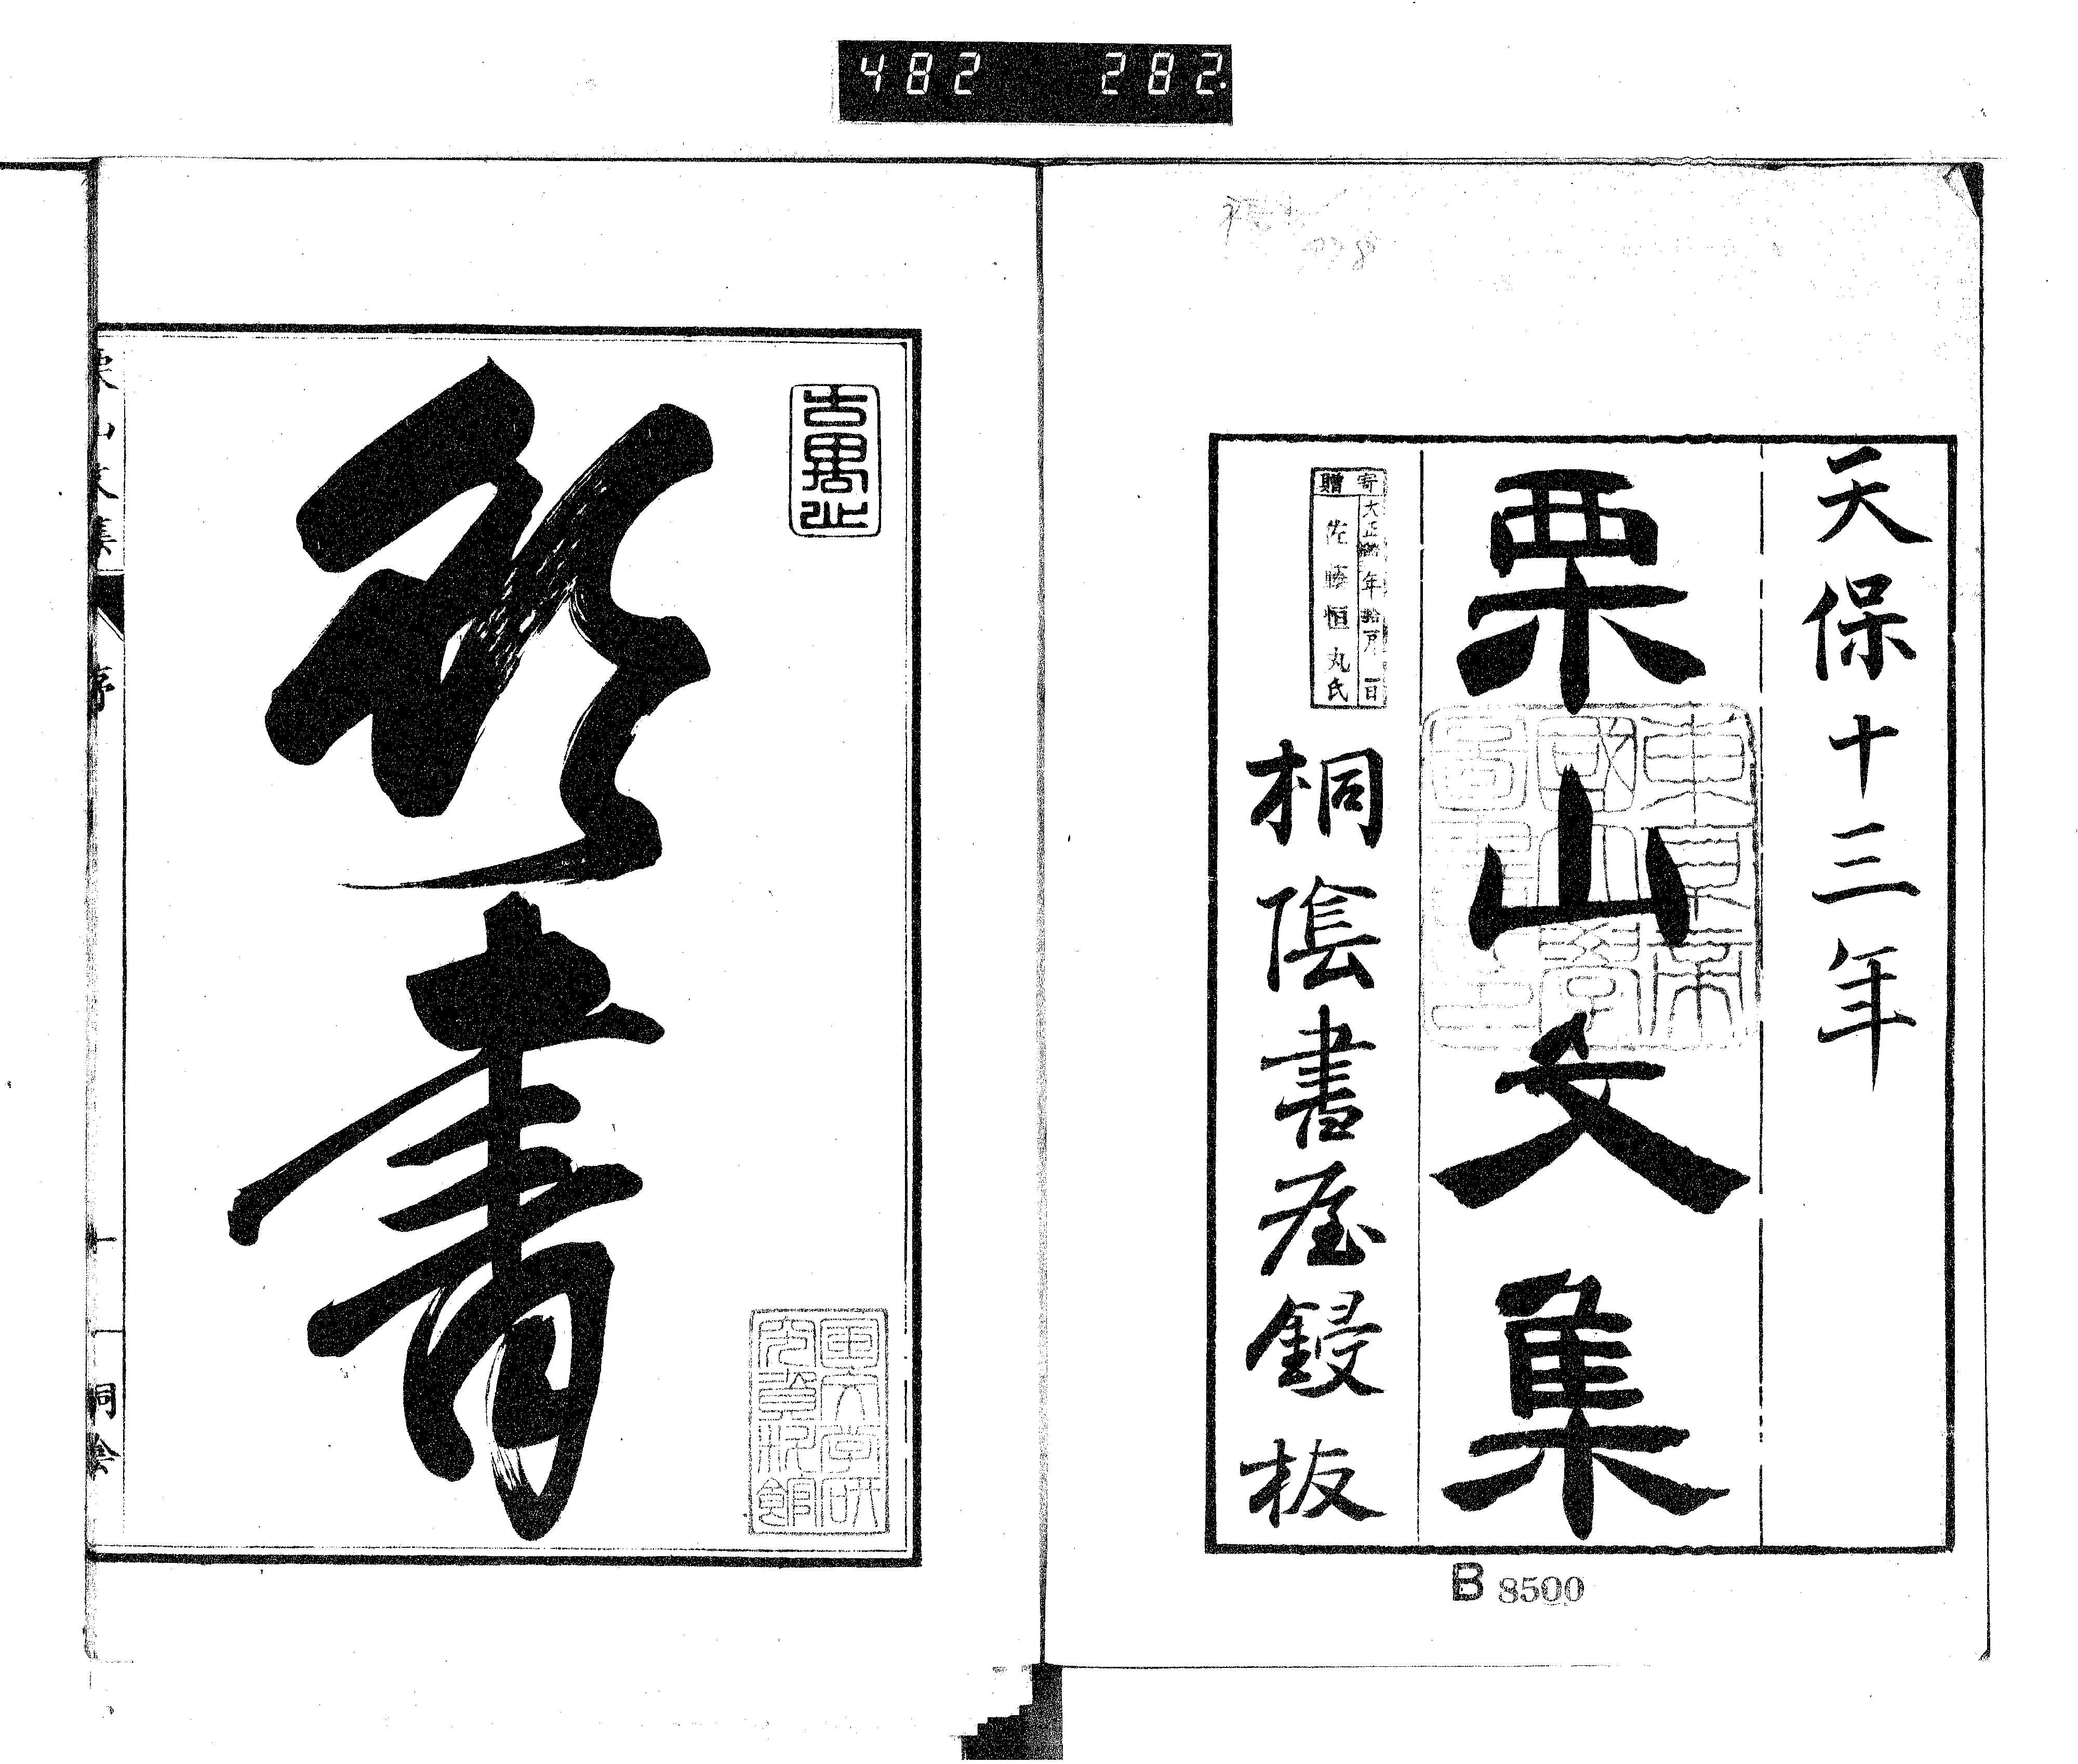 482 282.
天保十三年
栗山文集
桐陰書屋鋟板
寄贈
大正 年 月 一日
佐藤恒丸氏
東京帝
國大學
圖書印
B 8500
青
國文学研
究資料館
栗山文集
序
一
桐陰